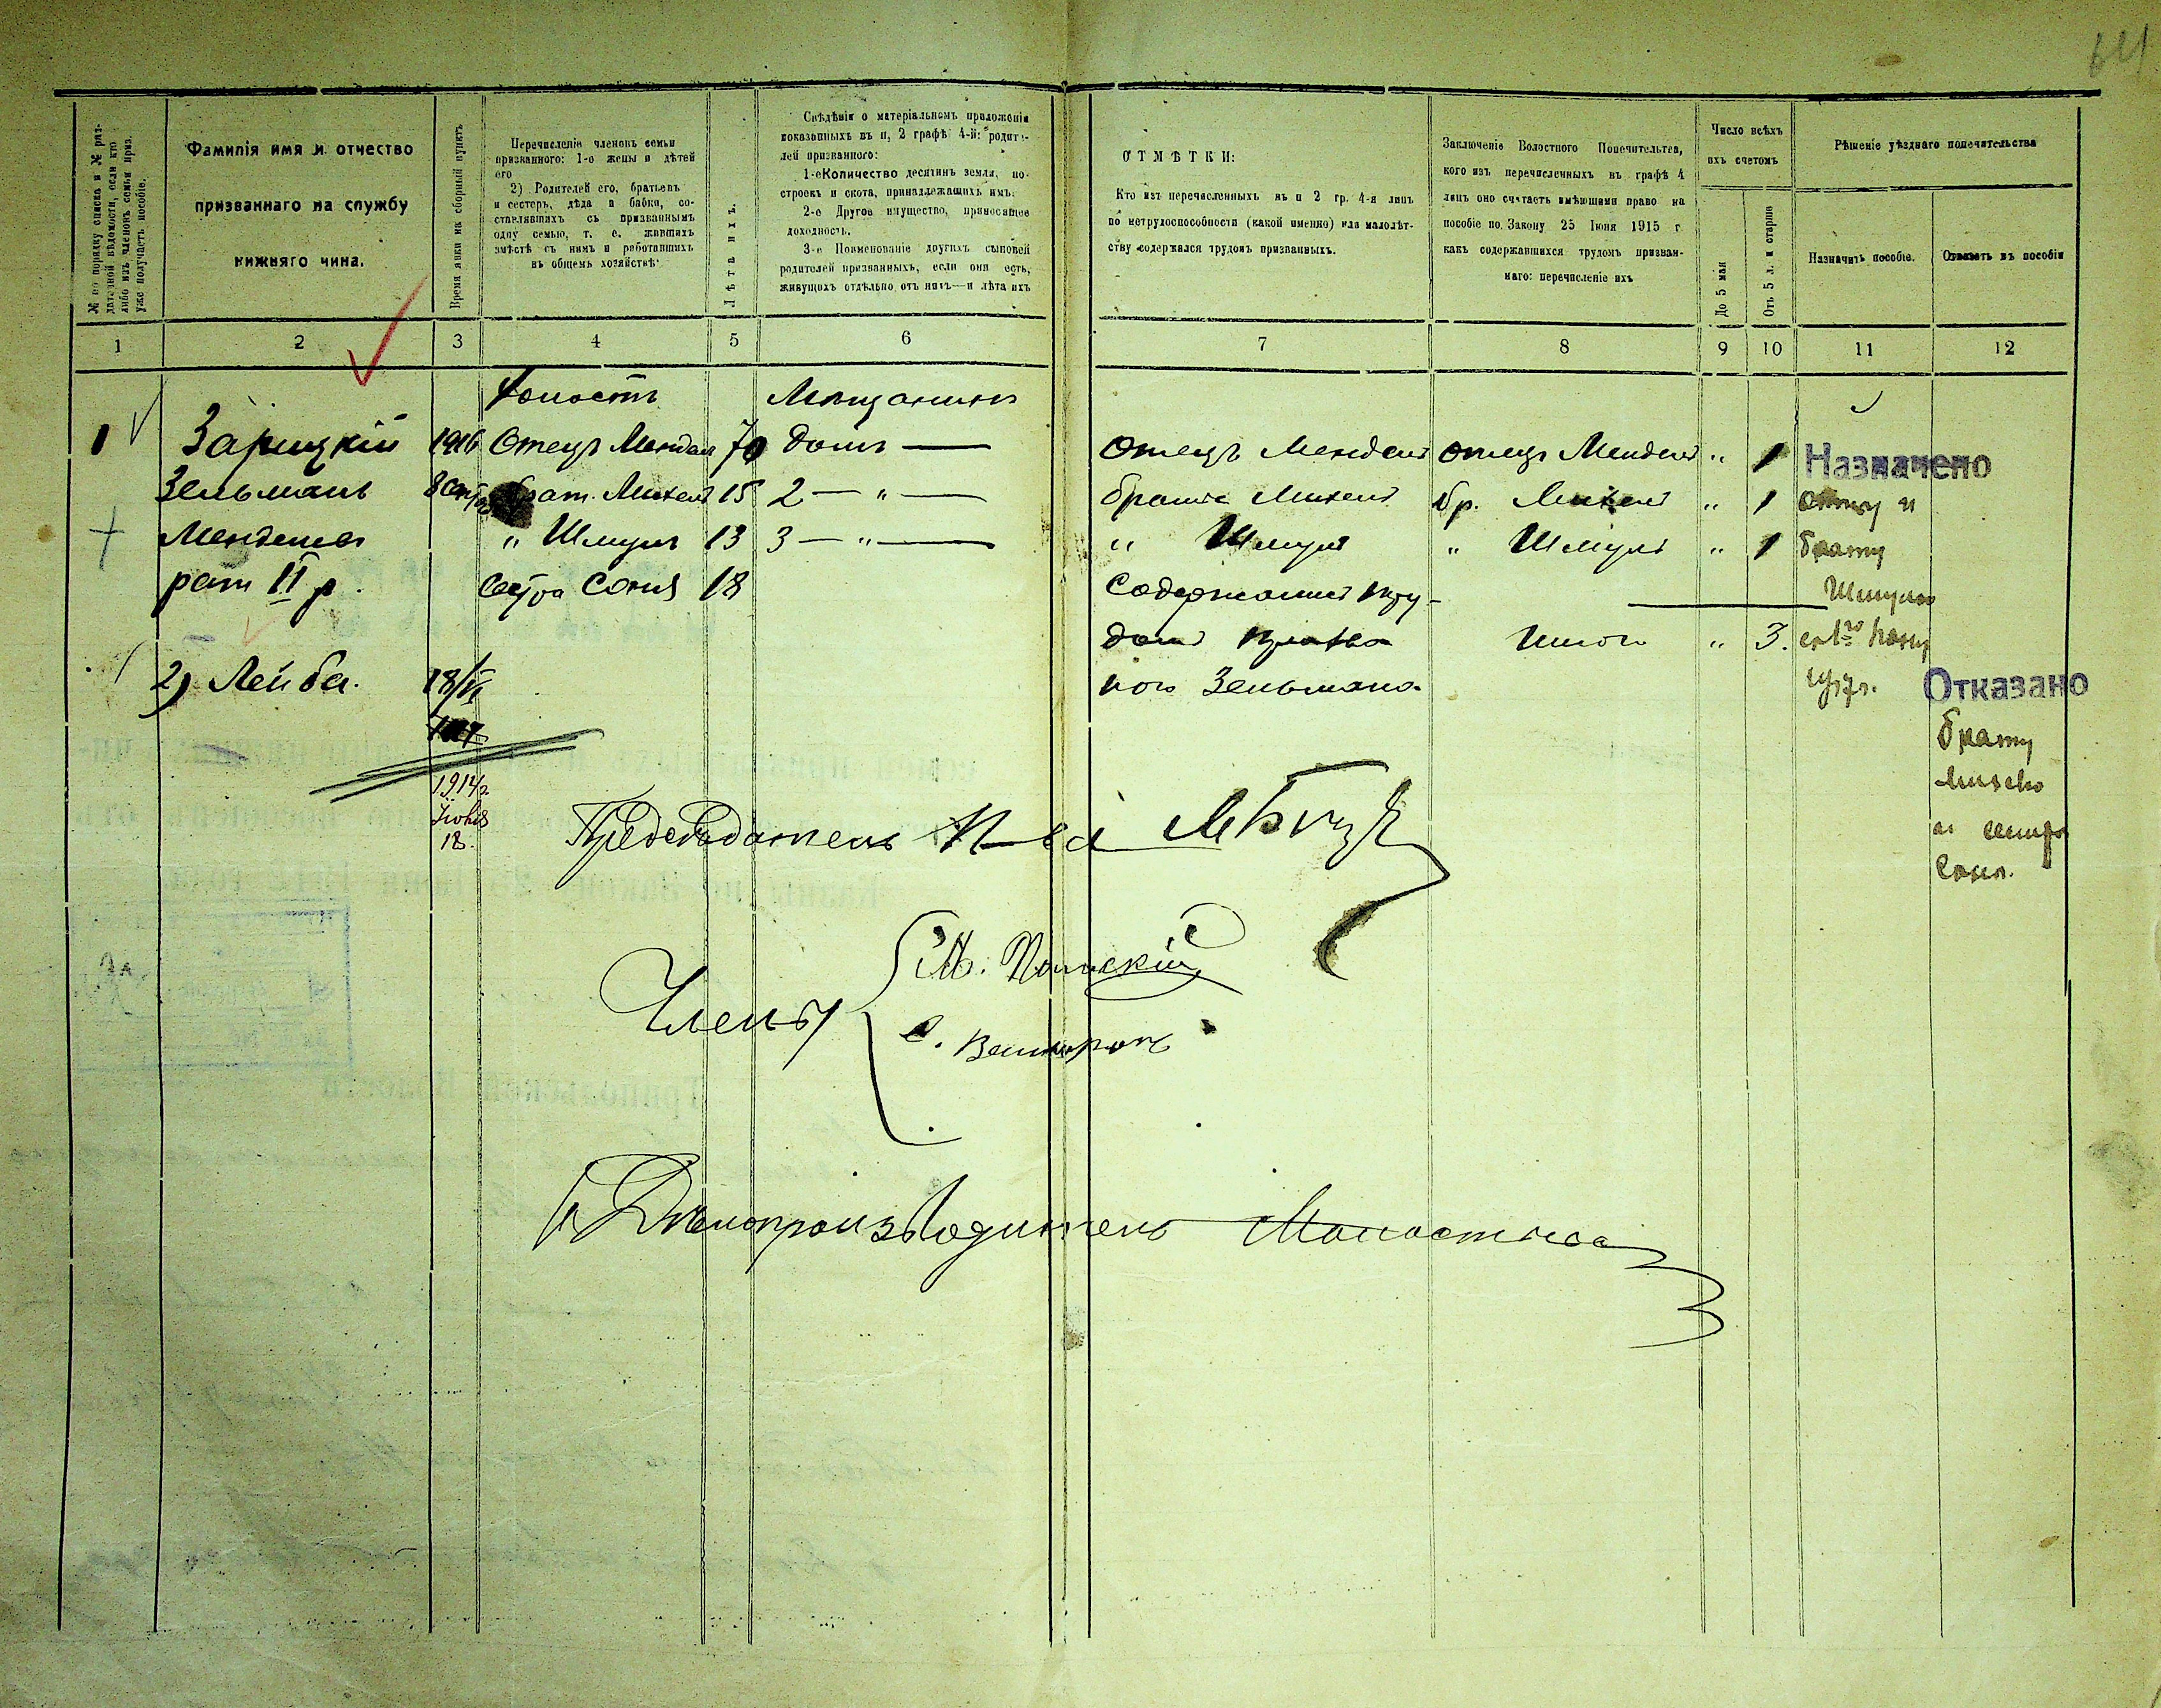 64
№ по порядку списка и № раз-
даточной вѣдомости, если кто
либо изъ членовъ семьи приз.
уже получаетъ пособіе.
Фамилія имя и отчество
призваннаго на службу
нижняго чина.
Время явки на сборный пунктъ
Перечисленіе членовъ семьи
призваннаго: 1-о жены и дѣтей
его
2) Родителей его, братьевъ
и сестеръ, дѣда и бабки, со-
ставлявшихъ съ призваннымъ
одну семью, т. е. жившихъ
вмѣстѣ съ нимъ и работавшихъ
въ общемъ хозяйствѣ:
Лѣта ихъ.
Свѣдѣнія о матеріальномъ приложеніи
показанныхъ въ п, 2 графѣ 4-й: родите-
лей призваннаго:
1-е Количество десятинъ земли, по-
строекъ и скота, принадлежащихъ имъ.
2-е Другое имущество, приносящее
доходность.
3-е Поименованіе другихъ сыновей
родителей призванныхъ, если они есть,
живущихъ отдѣльно отъ нихъ—и лѣта ихъ
ОТМѢТКИ:
Кто изъ перечисленныхъ въ п 2 гр. 4-я лицъ
по нетрудоспособности (какой именно) или малолѣт-
ству содержался трудомъ призванныхъ.
Заключеніе Волостного Попечительтва,
кого изъ перечисленныхъ въ графѣ 4
лицъ оно считать имѣющими право на
пособіе по Закону 25 Іюня 1915 г
какъ содержавшихся трудомъ призван-
наго: перечисленіе ихъ
Число всѣхъ
ихъ счетомъ
До 5 мая
Отъ 5 л. и старше
Рѣшеніе уѣзднаго попечительства
Назначить пособіе.
Отказать въ пособіи
1 2 3 4 5 6 7 8 9 10 11 12
Холостъ Мѣщанинъ
1 Зарицкій 1916 Отецъ Мендель 70 домъ — Отецъ Мендель Отецъ Мендель " 1 Назначено
Зельманъ 8 Сент. брат. Михель 15 2 — " — братъ Михель бр. Михель " 1 Отцу и
Менделев " Шмуль 13 3 — " — " Шмуль " Шмуль " 1 брату
рат II р. Сестра Соня 18 Содержались тру- Шмулю
домъ призван Итого " 3. съ 1го
2) Лейба. 18/VI ного Зельмана. Отказано
брату
1914 г. Михелю
Іюня и сестре
18. Соне.
Предсѣдатель П-ва
Члены
Дѣлопроизводитель